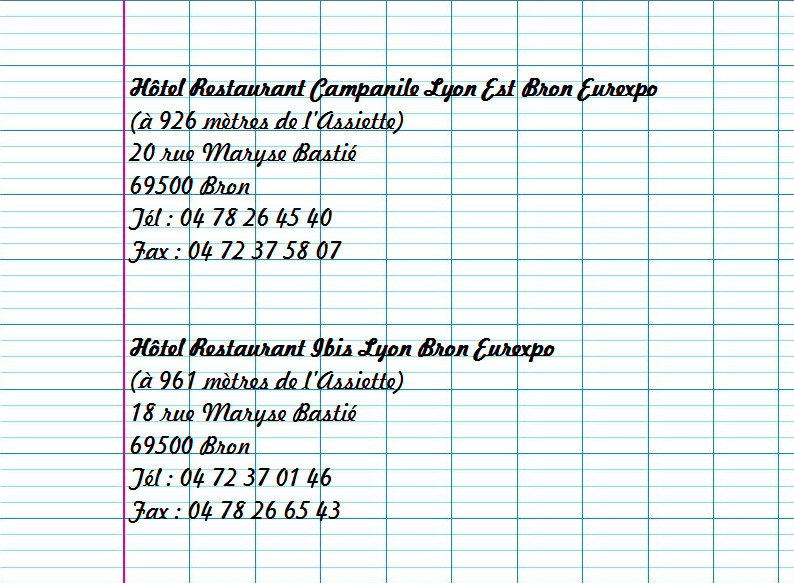 Hôtel Restaurant Campanile Lyon Est Bron Eurexpo
(à 926 mètres de l'Assiette)
20 rue Maryse Bastié
69500 Bron
Tél : 04 78 26 45 40
Fax : 04 72 37 58 07
Hôtel Restaurant Ibis Lyon Bron Eurexpo
(à 961 mètres de l'Assiette)
18 rue Maryse Bastié
69500 Bron
Tél : 04 72 37 01 46
Fax : 04 78 26 65 43